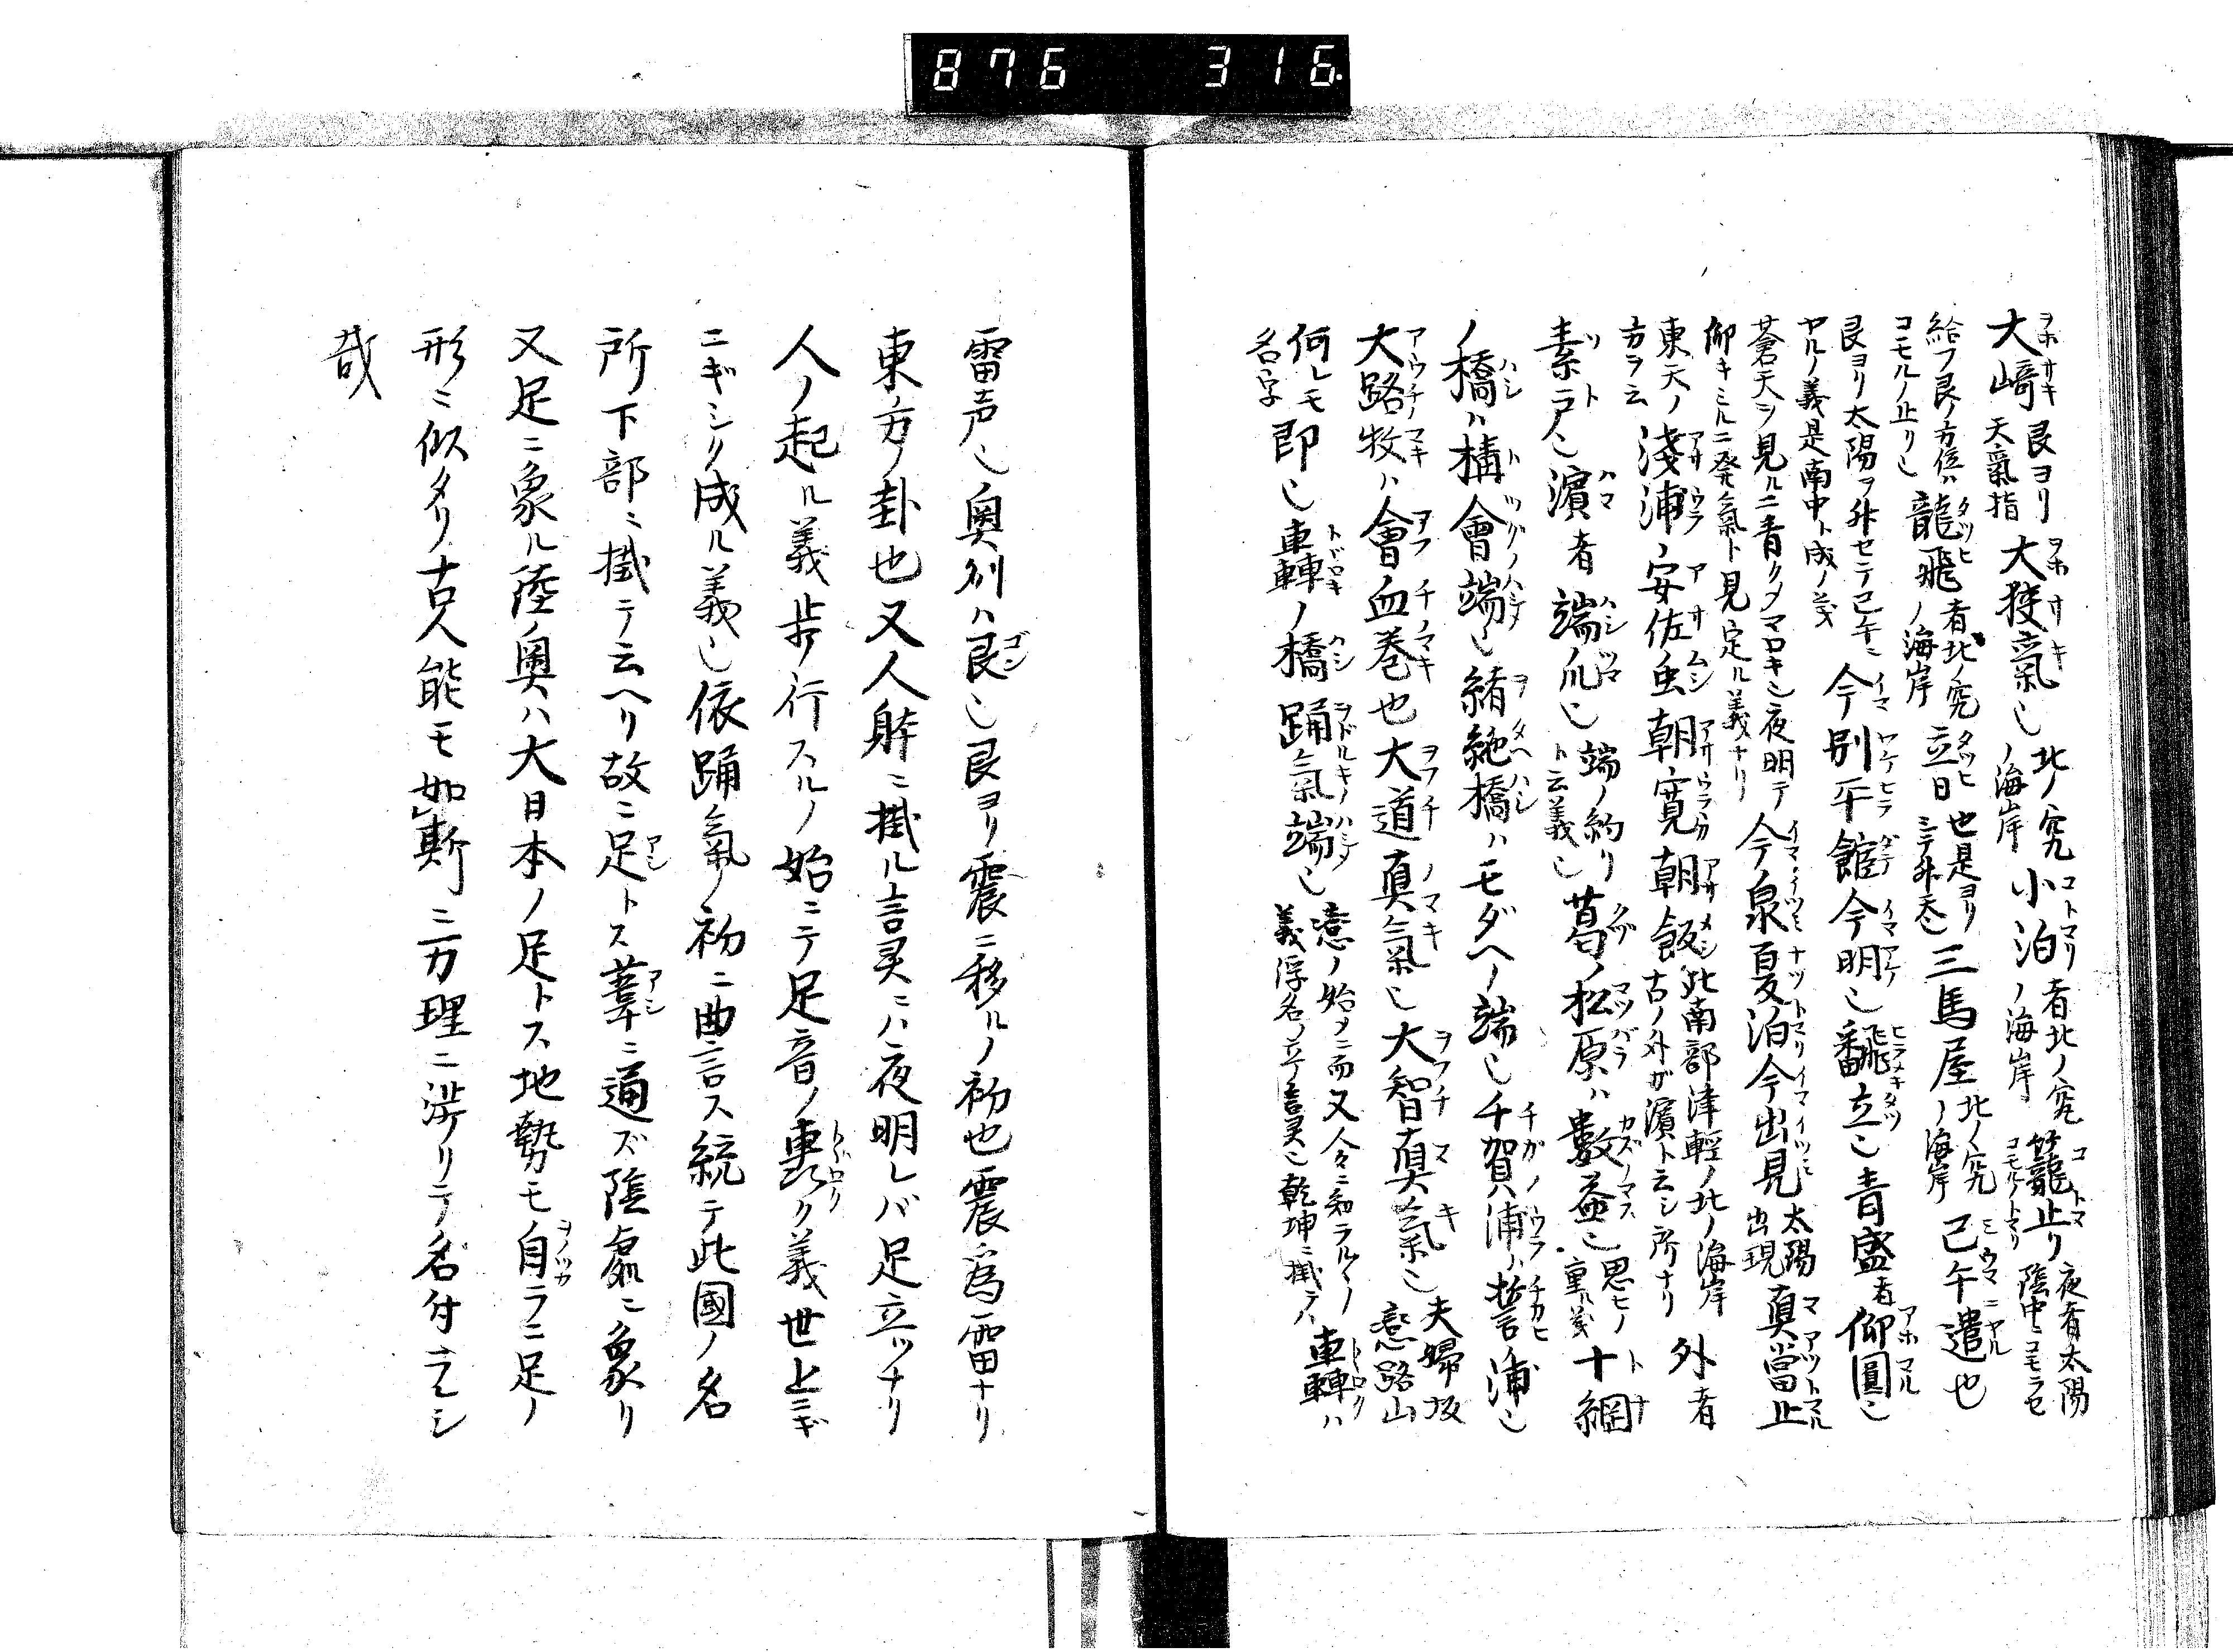 876 316
大﨑艮ヨリ天氣指大㹨氣也北ノ究ノ海岸小泊者北ノ究ノ海岸籠止リ夜者太陽陰中ニコモラセ
給フ艮ノ方位ハコモルノ止リ也龍飛者北ノ究ノ海岸立日也是ヨリミテ外天三馬屋北ノ究ノ海岸巳午遣也
艮ヨリ太陽ヲ外セテ巳午ニヤルノ義是南中ト成ノ義今別平舘今明也飜立也青盛者仰圓也
蒼天ヲ見ルニ青クシマロキ也夜明テ仰キミルニ発氣ト見定ル義ナリ今泉夏泊今出見太陽出現眞當止
東天ノ方ヲ云淺浦安佐虫朝寛朝飯此南部津輕ノ北ノ海岸古ノ外ガ濱ト云シ所ナリ外者
素ニテ也濱者端爪也端ノ約リト云義也葛ノ松原ハ數益也思ヒノ重ル義十綱
ノ橋ハ構會端也緒絶橋ハモダヘノ端也千賀ノ浦ハ誓ノ浦也
大路牧ハ會血巻也大道眞氣也大智眞氣也夫婦坂惷路山
何レモ名字即也轟ノ橋踊氣端也惷ノ始メニ而又今々ニ知ラルヽノ義浮名ノ立ツ言灵也乾坤ニ掛テハ轟ハ
雷声也奥刕ハ艮也艮ヨリ震ニ移ルノ初也震為雷ナリ
東方ノ卦也又人躰ニ掛ル言灵ニハ夜明レバ足立ツナリ
人ノ起ル義歩ノ行スルノ始ニテ足音ノ轟ク義世上ニギ
ニギシク成ル義也依踊氣ノ初ニ曲言ス統テ此國ノ名
所下部ニ掛テ云ヘリ故ニ足トス葦ニ通ズ陰処ニ象リ
又足ニ象ル陸奥ハ大日本ノ足トス地勢モ自ラニ足ノ
形ニ似タリ古人能モ如斯ニ万理ニ渉リテ名付ラレシ
哉